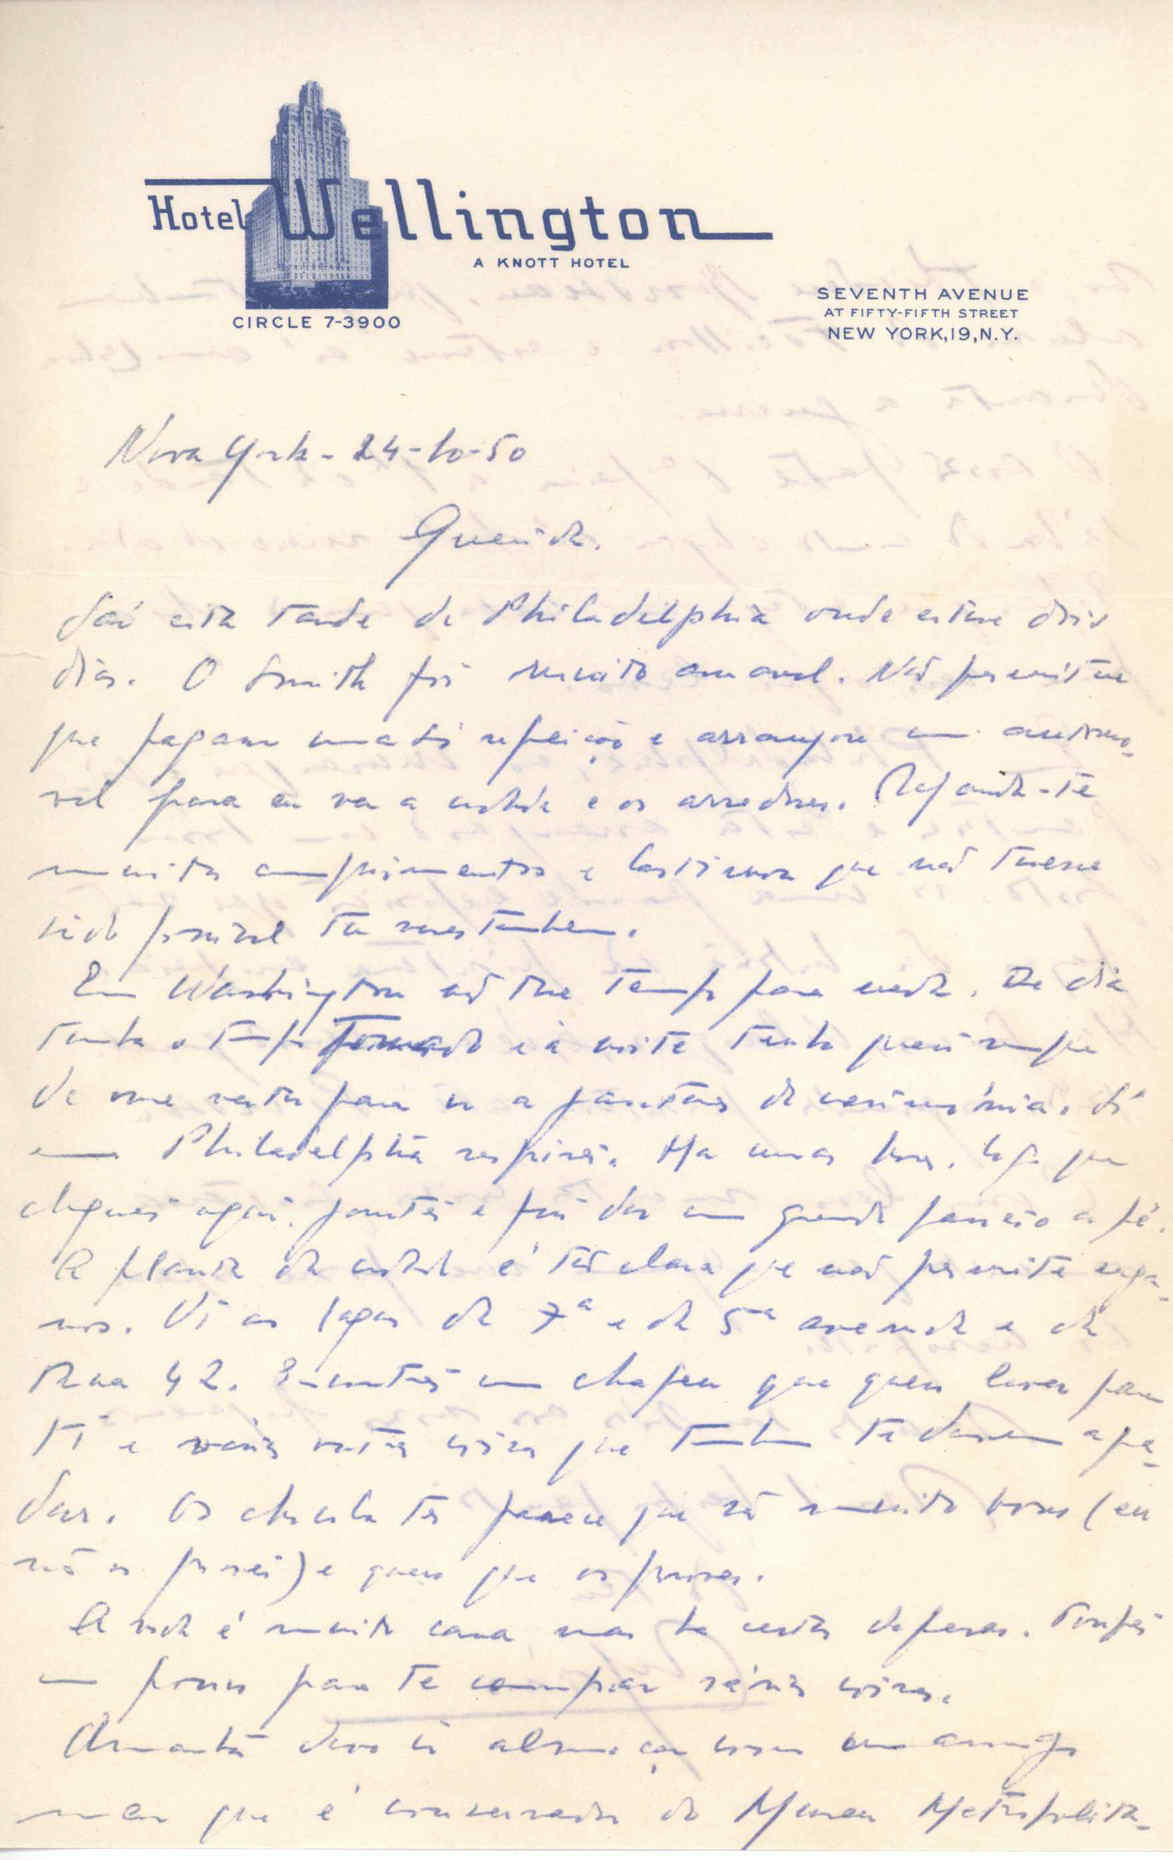 Hotel Wellington
A KNOTT HOTEL
CIRCLE 7-3900
SEVENTH AVENUE
AT FIFTY-FIFTH STREET
NEW YORK,19,N.Y.
Nova York - 24-10-50
Querida.
Saí esta tarde de Philadelphia onde estive dois
dias. O Smith foi muito amavel. Não permitiu
que pagasse uma só refeição e arranjou um automo-
vel para eu ver a cidade e os arredores. Manda-te
muitos cumprimentos e lastimou que não tivesse
sido possivel tu vires tambem.
Em Washington não tive tempo para nada. De dia
tinha o tempo tomado e à noite tinha sempre
de me vestir para ir a jantares de cerimónia. Só
em Philadelphia respirei. Ha umas horas, logo que
cheguei aqui, jantei e fui dar um grande passeio a pé.
A planta da cidade é tão clara que não permite enga-
nos. Vi as lojas da 7ª e da 5ª avenida e da
Rua 42. Encontrei um chapeu que quero levar para
ti e varias outras coisas que tambem te devem agra-
dar. Os chocolates parece que são muito bons (eu
não os provei) e quero que os proves.
A vida é muito cara mas ha certas defesas.
um pouco para te comprar várias coisas.
Amanhã devo ir almoçar com um amigo
meu que é conservador do Museu Metropolita-